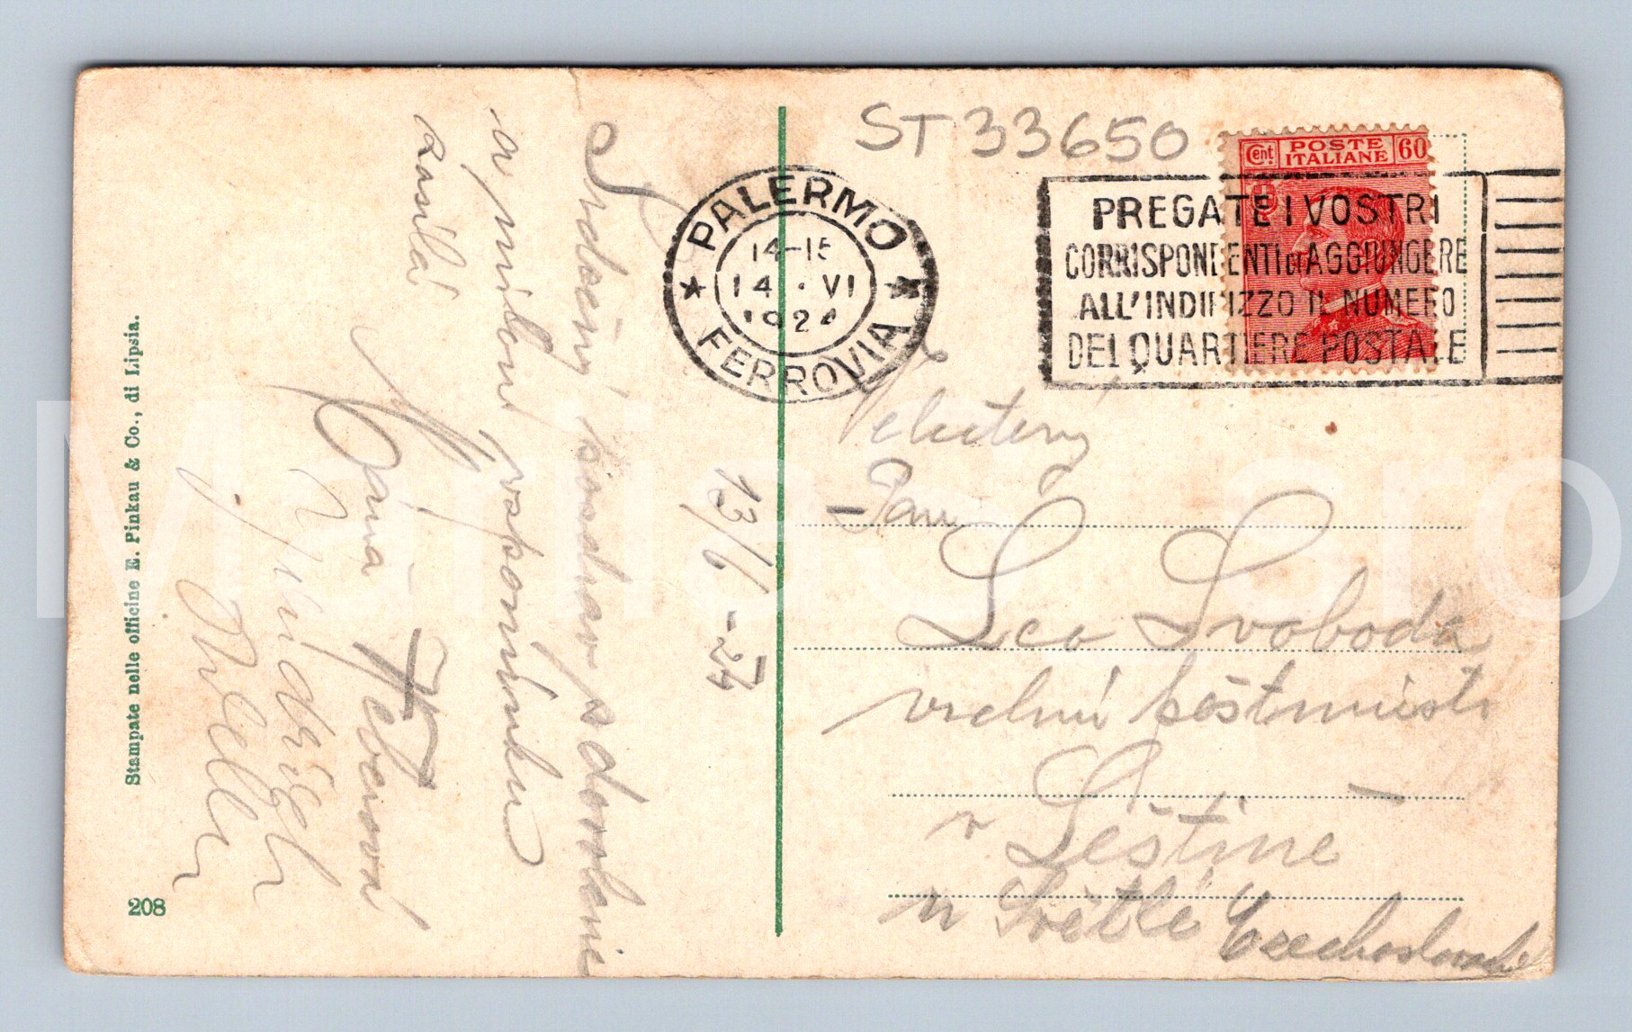 ST 33650
Cent POSTE ITALIANE 60
PALERMO
14-15
14 · VI
1924
FERROVIA
PREGATE I VOSTRI
CORRISPONDENTI DI AGGIUNGERE
ALL'INDIRIZZO IL NUMERO
DEL QUARTIERE POSTALE
Velectěný
Pan
Leo Svoboda
vrchní
v Leštině
u Světlé Czechoslovachei
13/6 -24
Srdečný pozdrav s dovolené
a milou vzpomínku
zasílá
Mána Weberová
Stampate nelle officine E. Pinkau & Co., di Lipsia.
208